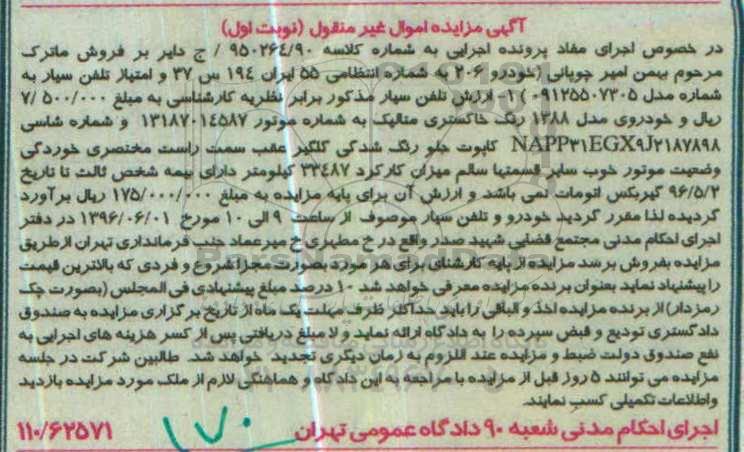 آگهی مزایده اموال غیر منقول (نوبت اول)
در خصوص اجرای مفاد پرونده اجرایی به شماره کلاسه ۹۵۰۲۶۴/۹۰ / ج دایر بر فروش ماترک
مرحوم بیمن امیر چوپانی (خودرو ۲۰۶ به شماره انتظامی ۵۵ ایران ۱۹۴ س ۳۷ و امتیاز تلفن سیار به
شماره مدل ۰۹۱۲۵۵۰۷۳۰۵ ) ۱- ارزش تلفن سیار مذکور برابر نظریه کارشناسی به مبلغ ۵۰۰/۰۰۰ /۷
ریال و خودروی مدل ۱۳۸۸ رنگ خاکستری متالیک به شماره موتور ۱۳۱۸۷۰۱۴۵۸۷ و شماره شاسی
NAPP۳۱EGX۹J۲۱۸۷۸۹۸ کاپوت جلو رنگ شدگی گلگیر عقب سمت راست مختصری خوردگی
وضعیت موتور خوب سایر قسمتها سالم میزان کارکرد ۳۳۴۸۷ کیلومتر دارای بیمه شخص ثالث تا تاریخ
۹۶/۵/۲ گیربکس اتومات نمی باشد و ارزش آن برای پایه مزایده به مبلغ ۱۷۵/۰۰۰/۰۰۰ ریال برآورد
گردیده لذا مقرر گردید خودرو و تلفن سیار موصوف از ساعت ۹ الی ۱۰ مورخ ۱۳۹۶/۰۶/۰۱ در دفتر
اجرای احکام مدنی مجتمع قضایی شهید صدر واقع در خ مطهری خ میرعماد جنب فرمانداری تهران ازطریق
مزایده بفروش برسد مزایده از پایه کارشنای برای هر مورد بصورت مجزا شروع و فردی که بالاترین قیمت
را پیشنهاد نماید بعنوان برنده مزایده معرفی خواهد شد ۱۰ درصد مبلغ پیشنهادی فی المجلس (بصورت چک
رمزدار) از برنده مزایده اخذ و الباقی را باید حداکثر ظرف مهلت یک ماه از تاریخ برگزاری مزایده به صندوق
دادگستری تودیع و قبض سپرده را به دادگاه ارائه نماید و لا مبلغ دریافتی پس از کسر هزینه های اجرایی به
نفع صندوق دولت ضبط و مزایده عند اللزوم به زمان دیگری تجدید خواهد شد. طالبین شرکت در جلسه
مزایده می توانند ۵ روز قبل از مزایده با مراجعه به این دادگاه و هماهنگی لازم از ملک مورد مزایده بازدید
واطلاعات تکمیلی کسب نمایند.
اجرای احکام مدنی شعبه ۹۰ دادگاه عمومی تهران ۱۱۰/۶۲۵۷۱
۱۷۰